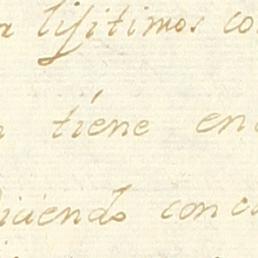 lisitimos co
tiene en
iciendo con c